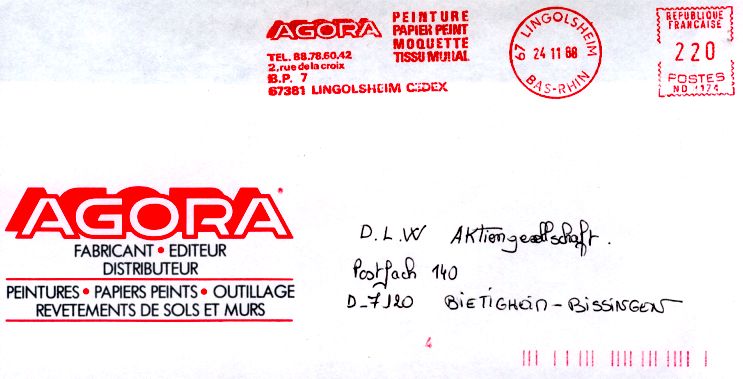 AGORA
PEINTURE
PAPIER PEINT
MOQUETTE
TISSU MURAL
TEL. 88.78.60.42
2, rue de la croix
B.P. 7
67381 LINGOLSHEIM CEDEX
67 LINGOLSHEIM
24 11 88
BAS-RHIN
REPUBLIQUE
FRANCAISE
220
POSTES
ND 1174
AGORA
FABRICANT • EDITEUR
DISTRIBUTEUR
PEINTURES • PAPIERS PEINTS • OUTILLAGE
REVETEMENTS DE SOLS ET MURS
D.L.W Aktiengesellschaft.
Postfach 140
D-7120 BIETIGHEIM-BISSINGEN
4